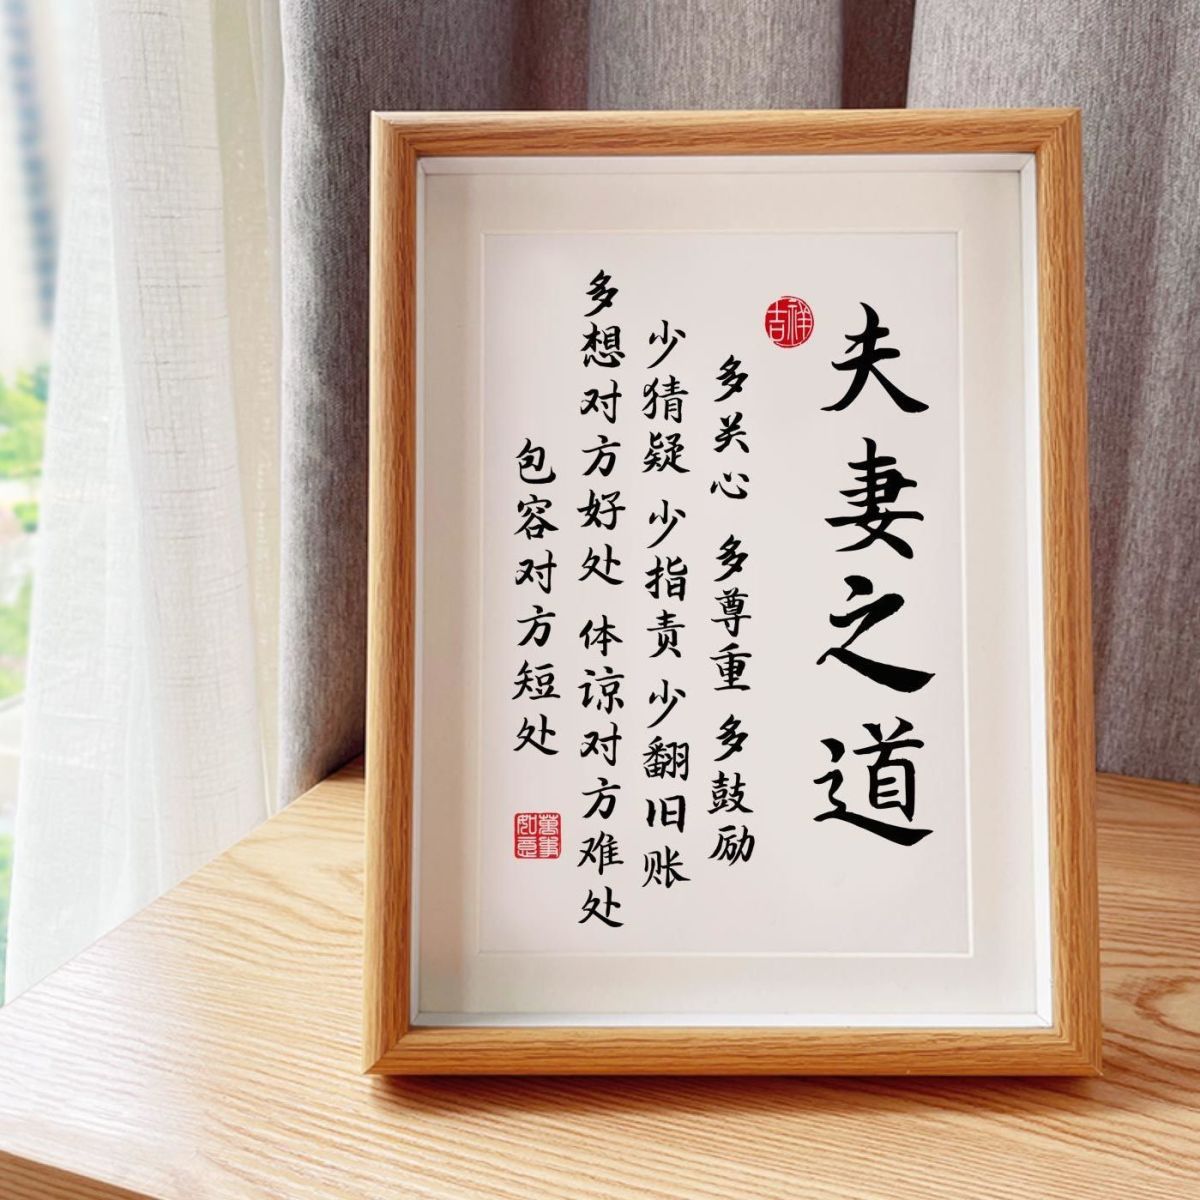 夫妻之道
吉祥
多关心 多尊重 多鼓励
少猜疑 少指责 少翻旧账
多想对方好处 体谅对方难处
包容对方短处
萬事如意